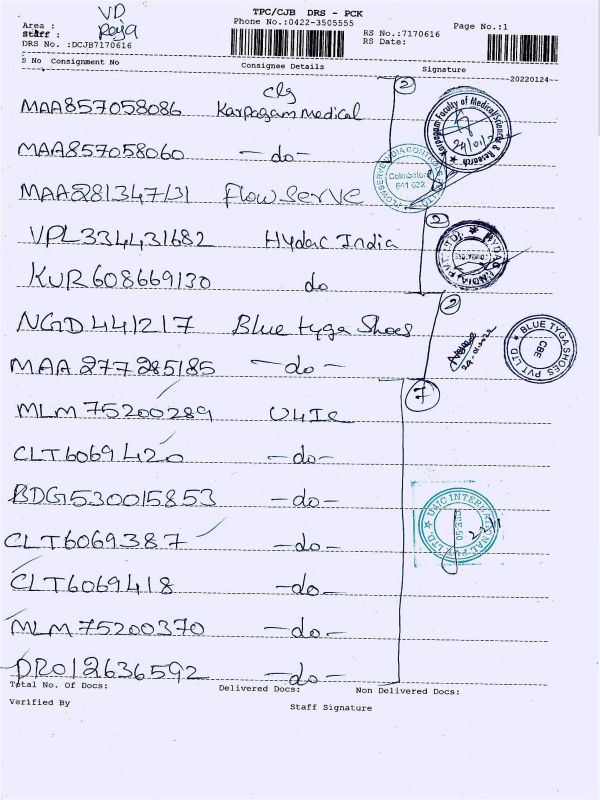 TPC/CJB DRS - PCK
Phone No.:0422-3505555
Page No.:1
Area : VD
staff : Raja
DRS No. :DCJB7170616
RS No.:7170616
RS Date:
S No Consignment No Consignee Details Signature
20220124
clg
MAA857058086 Karpagam Medical 2
Karpagam Faculty of Medical Sciences & Research
24/01/22
MAA857058060 —do—
Coimbatore
641 022
MAA281347131 Flowserve
VPL334431682 Hydac India 2
KUR608669130 do
2
NGD441217 Blue tyga Shoes
BLUE TYGA SHOES PVT LTD
CBE
MAA277285185 —do—
7
MLM75200289 U4IC
CLT6069420 —do—
BDG530015853 —do—
U4IC INTERNATIONAL PVT. LTD.
CLT6069387 —do—
CLT6069418 —do—
MLM75200370 —do—
DRO12636592 —do—
Total No. Of Docs: Delivered Docs: Non Delivered Docs:
Verified By Staff Signature